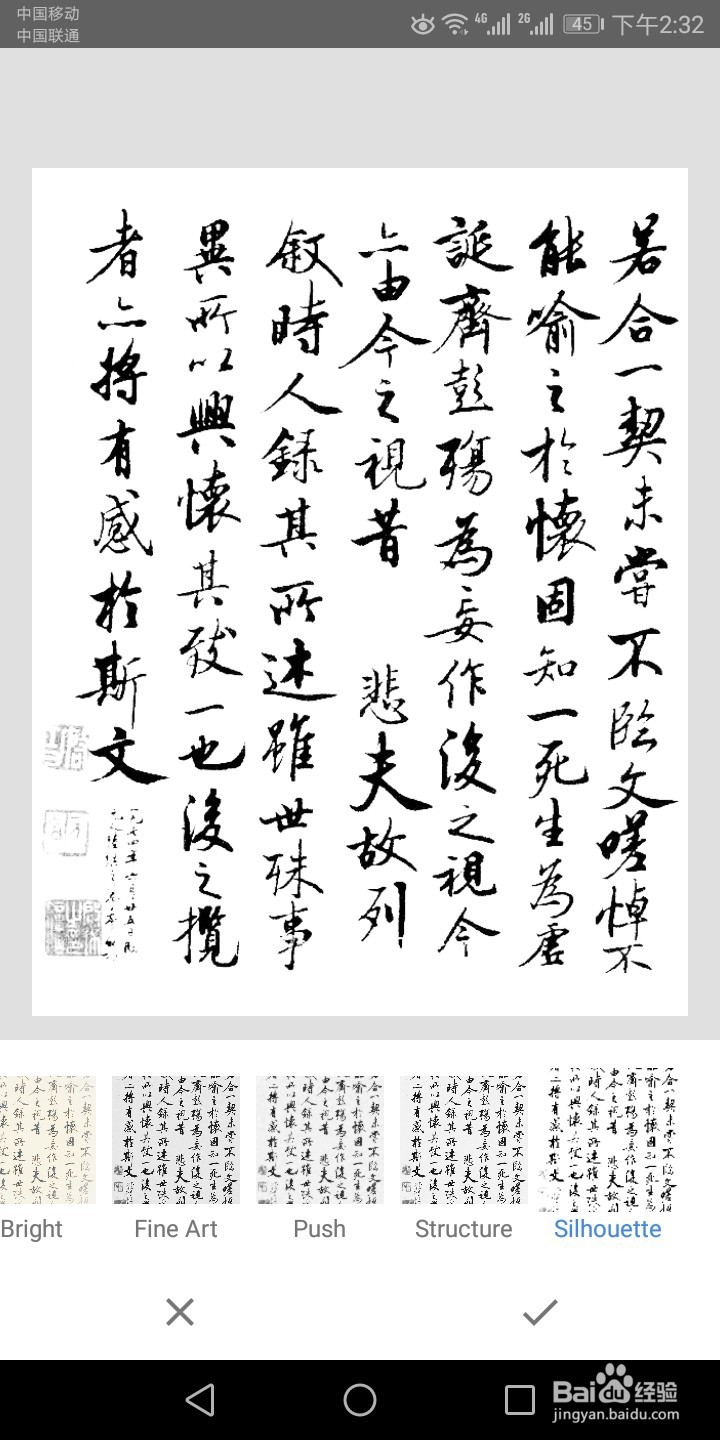 中国移动
中国联通
4G
2G
45
下午2:32
若合一契未嘗不臨文嗟悼不
能喻之於懷固知一死生為虛
誕齊彭殤為妄作後之視今
亦由今之視昔 悲夫故列
叙時人錄其所述雖世殊事
異所以興懷其致一也後之攬
者亦將有感於斯文
Bright
Fine Art
Push
Structure
Silhouette
Baidu经验
jingyan.baidu.com